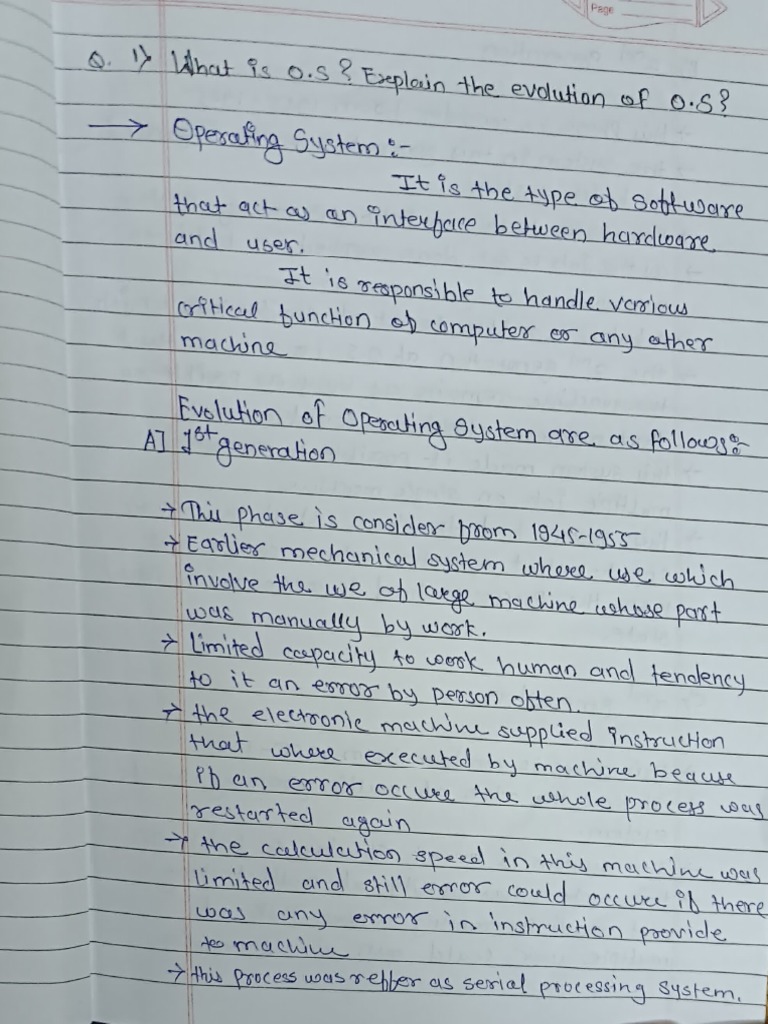 Page
Q. 1) What is O.S? Explain the evolution of O.S?
→ Operating System:-
It is the type of Software
that act as an interface between hardware
and user.
It is responsible to handle various
critical function of computer or any other
machine
Evolution of Operating System are as follows:-
A] 1st generation
→ This phase is consider from 1945-1955
→ Earlier mechanical system where use which
involve the use of large machine whose part
was manually by work.
→ Limited capacity to work human and tendency
to it an error by person often.
→ the electronic machine supplied instruction
that where executed by machine beause
if an error occure the whole process was
restarted again
→ the calculation speed in this machine was
limited and still error could occure if there
was any error in instruction provide
to machine
→ this process was reffer as serial processing system.